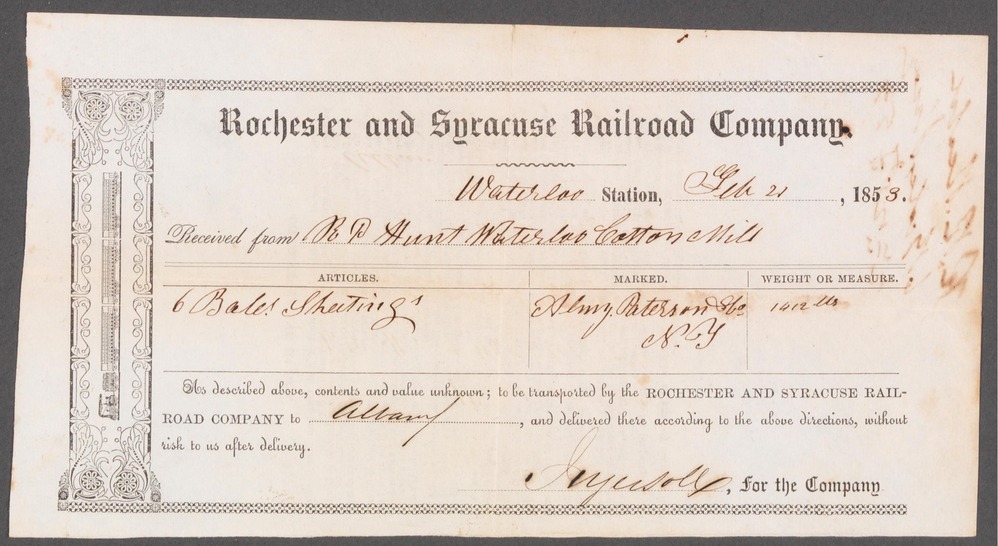 Rochester and Syracuse Railroad Company.
Waterloo Station, Feb 21, 1853.
Received from R P Hunt Waterloo Cotton Mill
ARTICLES. MARKED. WEIGHT OR MEASURE.
6 Bales Sheetings Almy Paterson & Co 1912 lbs
N. Y
As described above, contents and value unknown; to be transported by the ROCHESTER AND SYRACUSE RAIL-
ROAD COMPANY to Albany, and delivered there according to the above directions, without
risk to us after delivery.
Ingersoll, For the Company